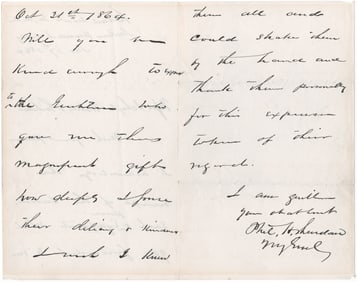 Oct 31st 1864.
Will you be
kind enough to express
to the Gentlemen who
gave me these
magnificent gifts
how deeply I
their & kindness
I wish I knew
them all and
could shake them
by the hand and
thank them personally
for this expression
token of their
regard.
I am
your obdt Servt
Phil. H. Sheridan
Maj Genl